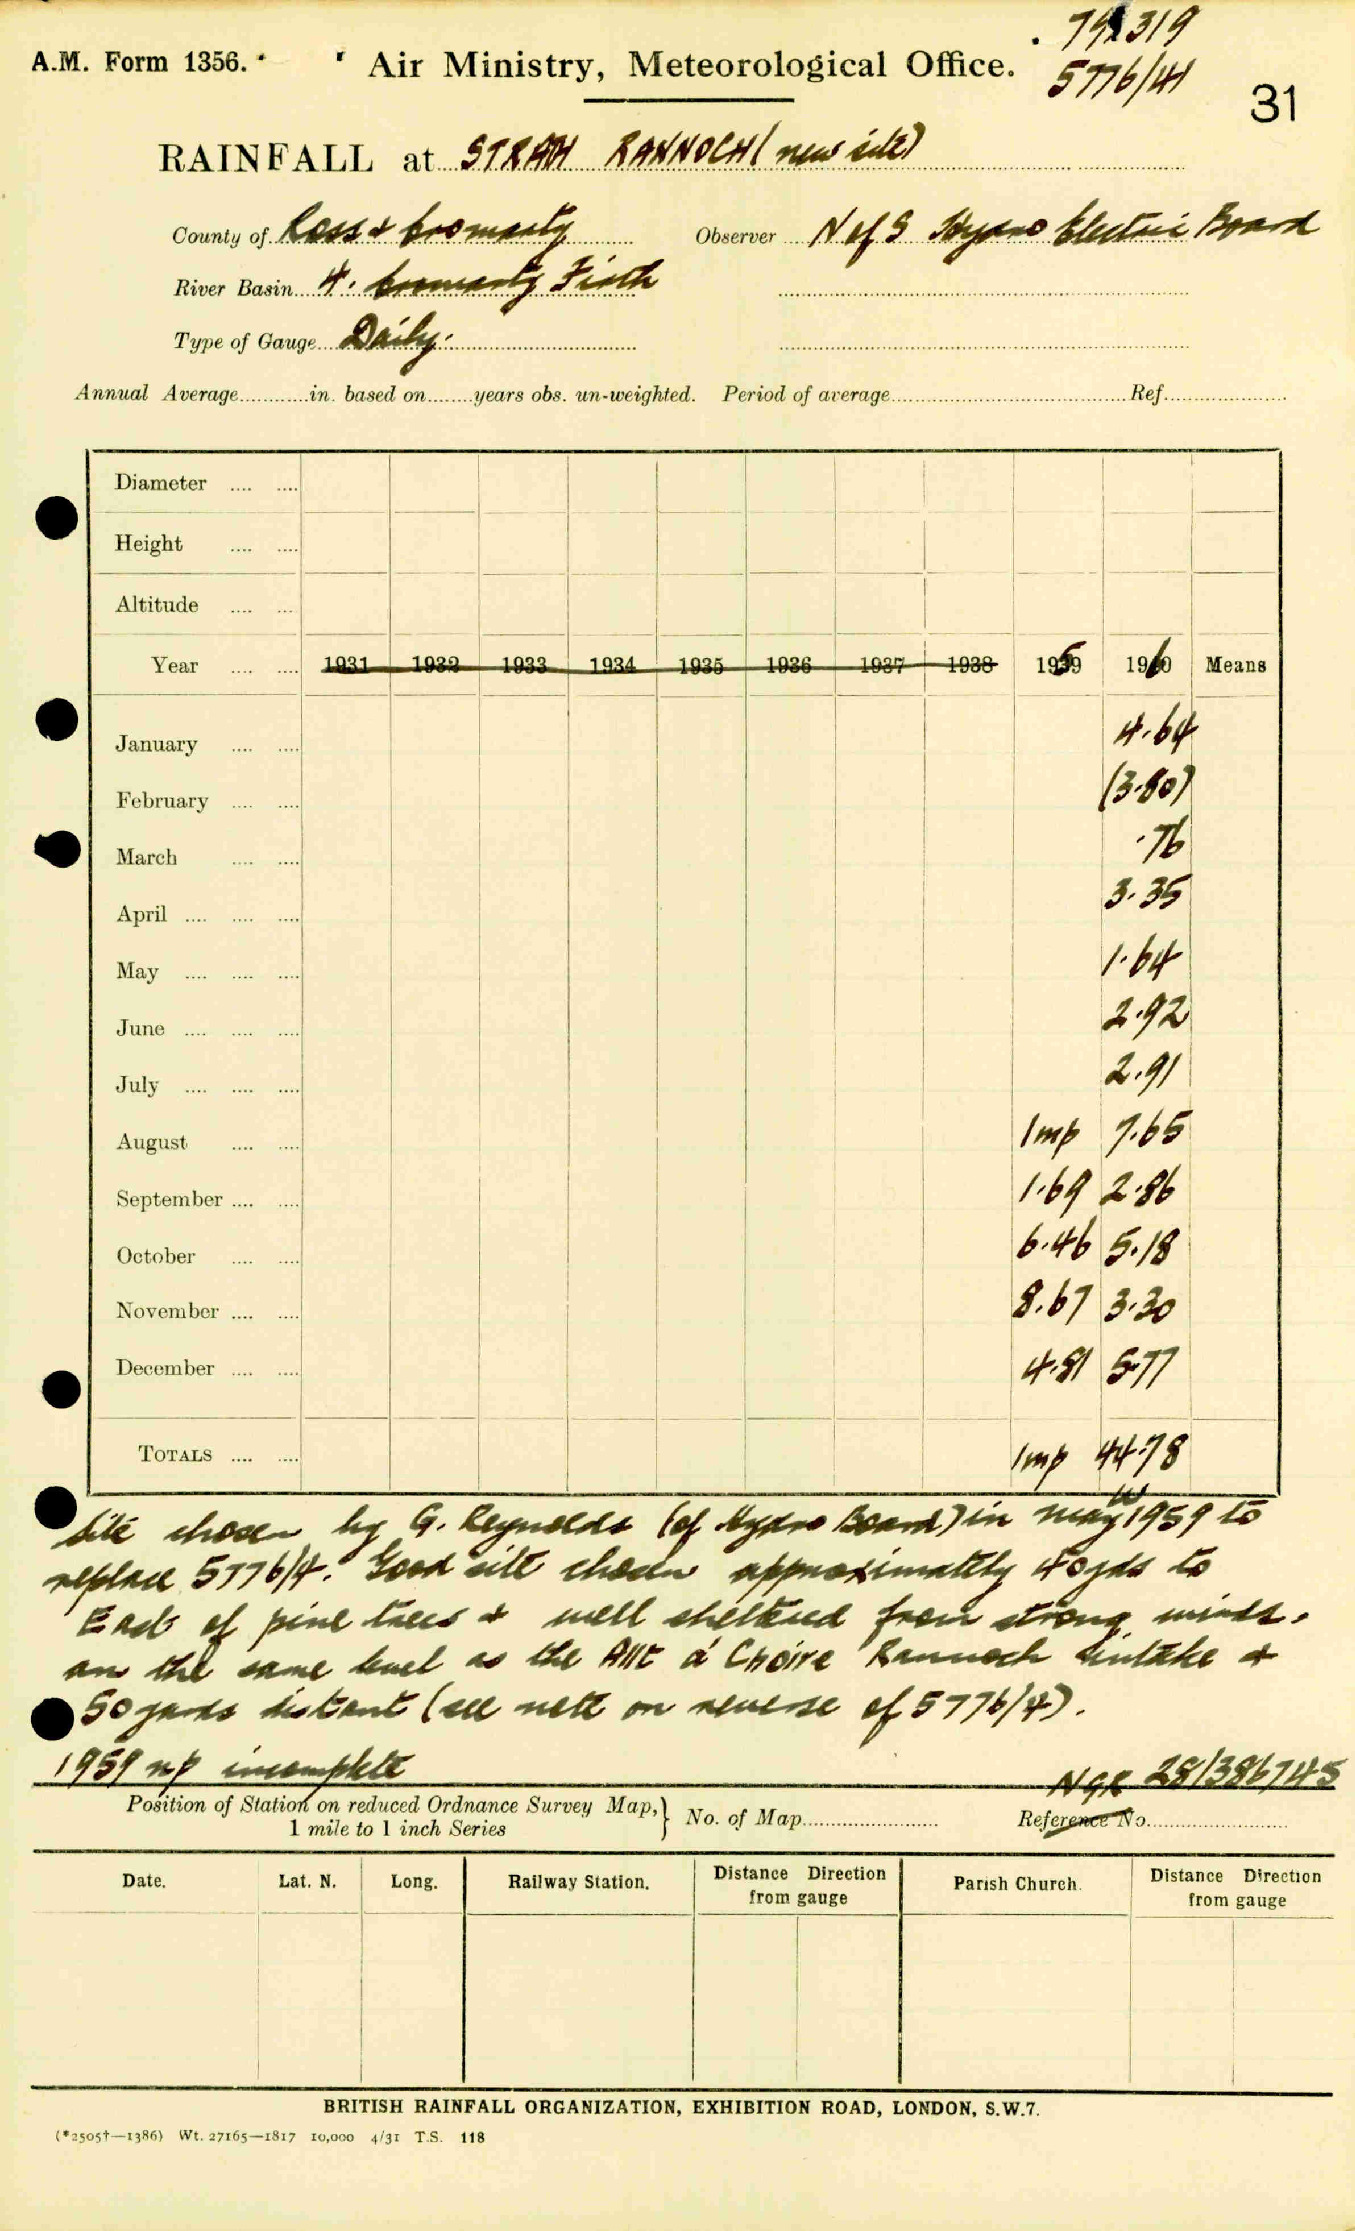 A.M. Form 1356. Air Ministry, Meteorological Office.
5776/41
31
RAINFALL at STRATH RANNOCH (new site)
County of Ross & Cromarty Observer N of S Hydro Electric Board
River Basin 4. Cromarty Firth
Type of Gauge Daily.
Annual Average............in. based on........years obs. un-weighted. Period of average.......... Ref..........
Diameter .... ....
Height .... ....
Altitude .... ...
Year .... .... 1931 1932 1933 1934 1935 1936 1937 1938 1959 1960 Means
January .... .... 4.64
February .... .... (3.80)
March .... .... .76
April .... .... .... 3.35
May .... .... .... 1.64
June .... .... .... 2.92
July .... .... .... 2.91
August .... .... Imp 7.65
September .... .... 1.69 2.86
October .... .... 6.46 5.18
November .... .... 8.67 3.30
December .... .... 4.81 5.77
TOTALS .... .... Imp 44.78
Site chosen by G. Reynolds (of Hydro Board) in may 1959 to
replace 5776/4. Good site chosen approximately 40 yds to
East of pine trees & well sheltered from strong winds,
on the same level as the Allt a' Choire Rannoch intake &
50 yards distant (see note on reverse of 5776/4).
1959 np incomplete
NGR 28/386745
Position of Station on reduced Ordnance Survey Map,} No. of Map.......... Reference No..........
1 mile to 1 inch Series
Date. Lat. N. Long. Railway Station. Distance Direction from gauge Parish Church. Distance Direction from gauge
BRITISH RAINFALL ORGANIZATION, EXHIBITION ROAD, LONDON, S.W.7.
(*2505†—1386) Wt. 27165—1817 10,000 4/31 T.S. 118